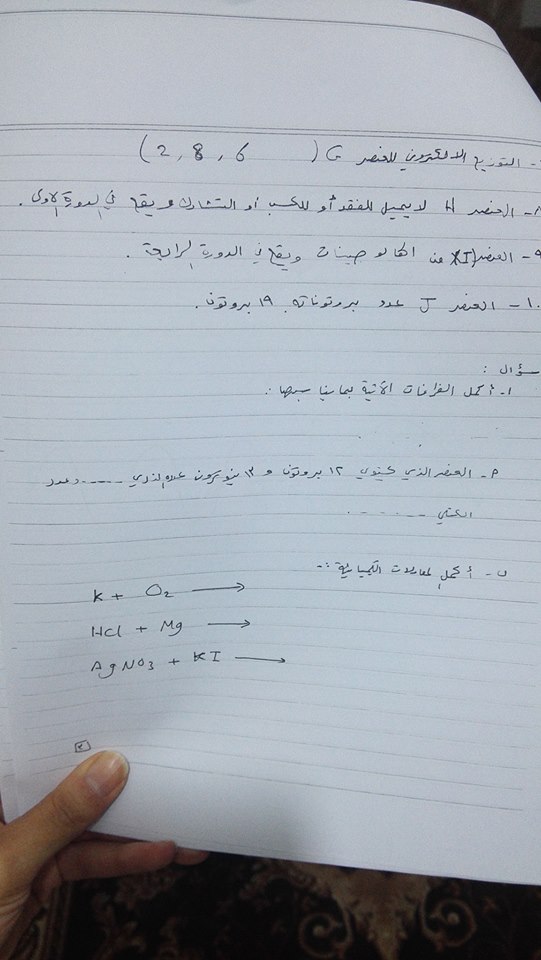 - التوزيع الالكتروني للعنصر G (2, 8, 6)
٨- العنصر H لا يميل للفقد أو للكسب أو التشارك ويقع في الدورة الأولى .
٩- العنصر I من الهالوجينات ويقع في الدورة الرابعة .
١٠- العنصر J عدد بروتوناته ١٩ بروتون .
سؤال :
١- أكمل الفراغات الآتية بما يناسبها :
٩- العنصر الذي يحتوي ١٢ بروتون و ١٣ نيوترون عدده الذري ...... وعدد
الكتلي ......
ب- أكمل المعادلات الكيميائية :-
K + O2 →
HCl + Mg →
AgNO3 + KI →
٢